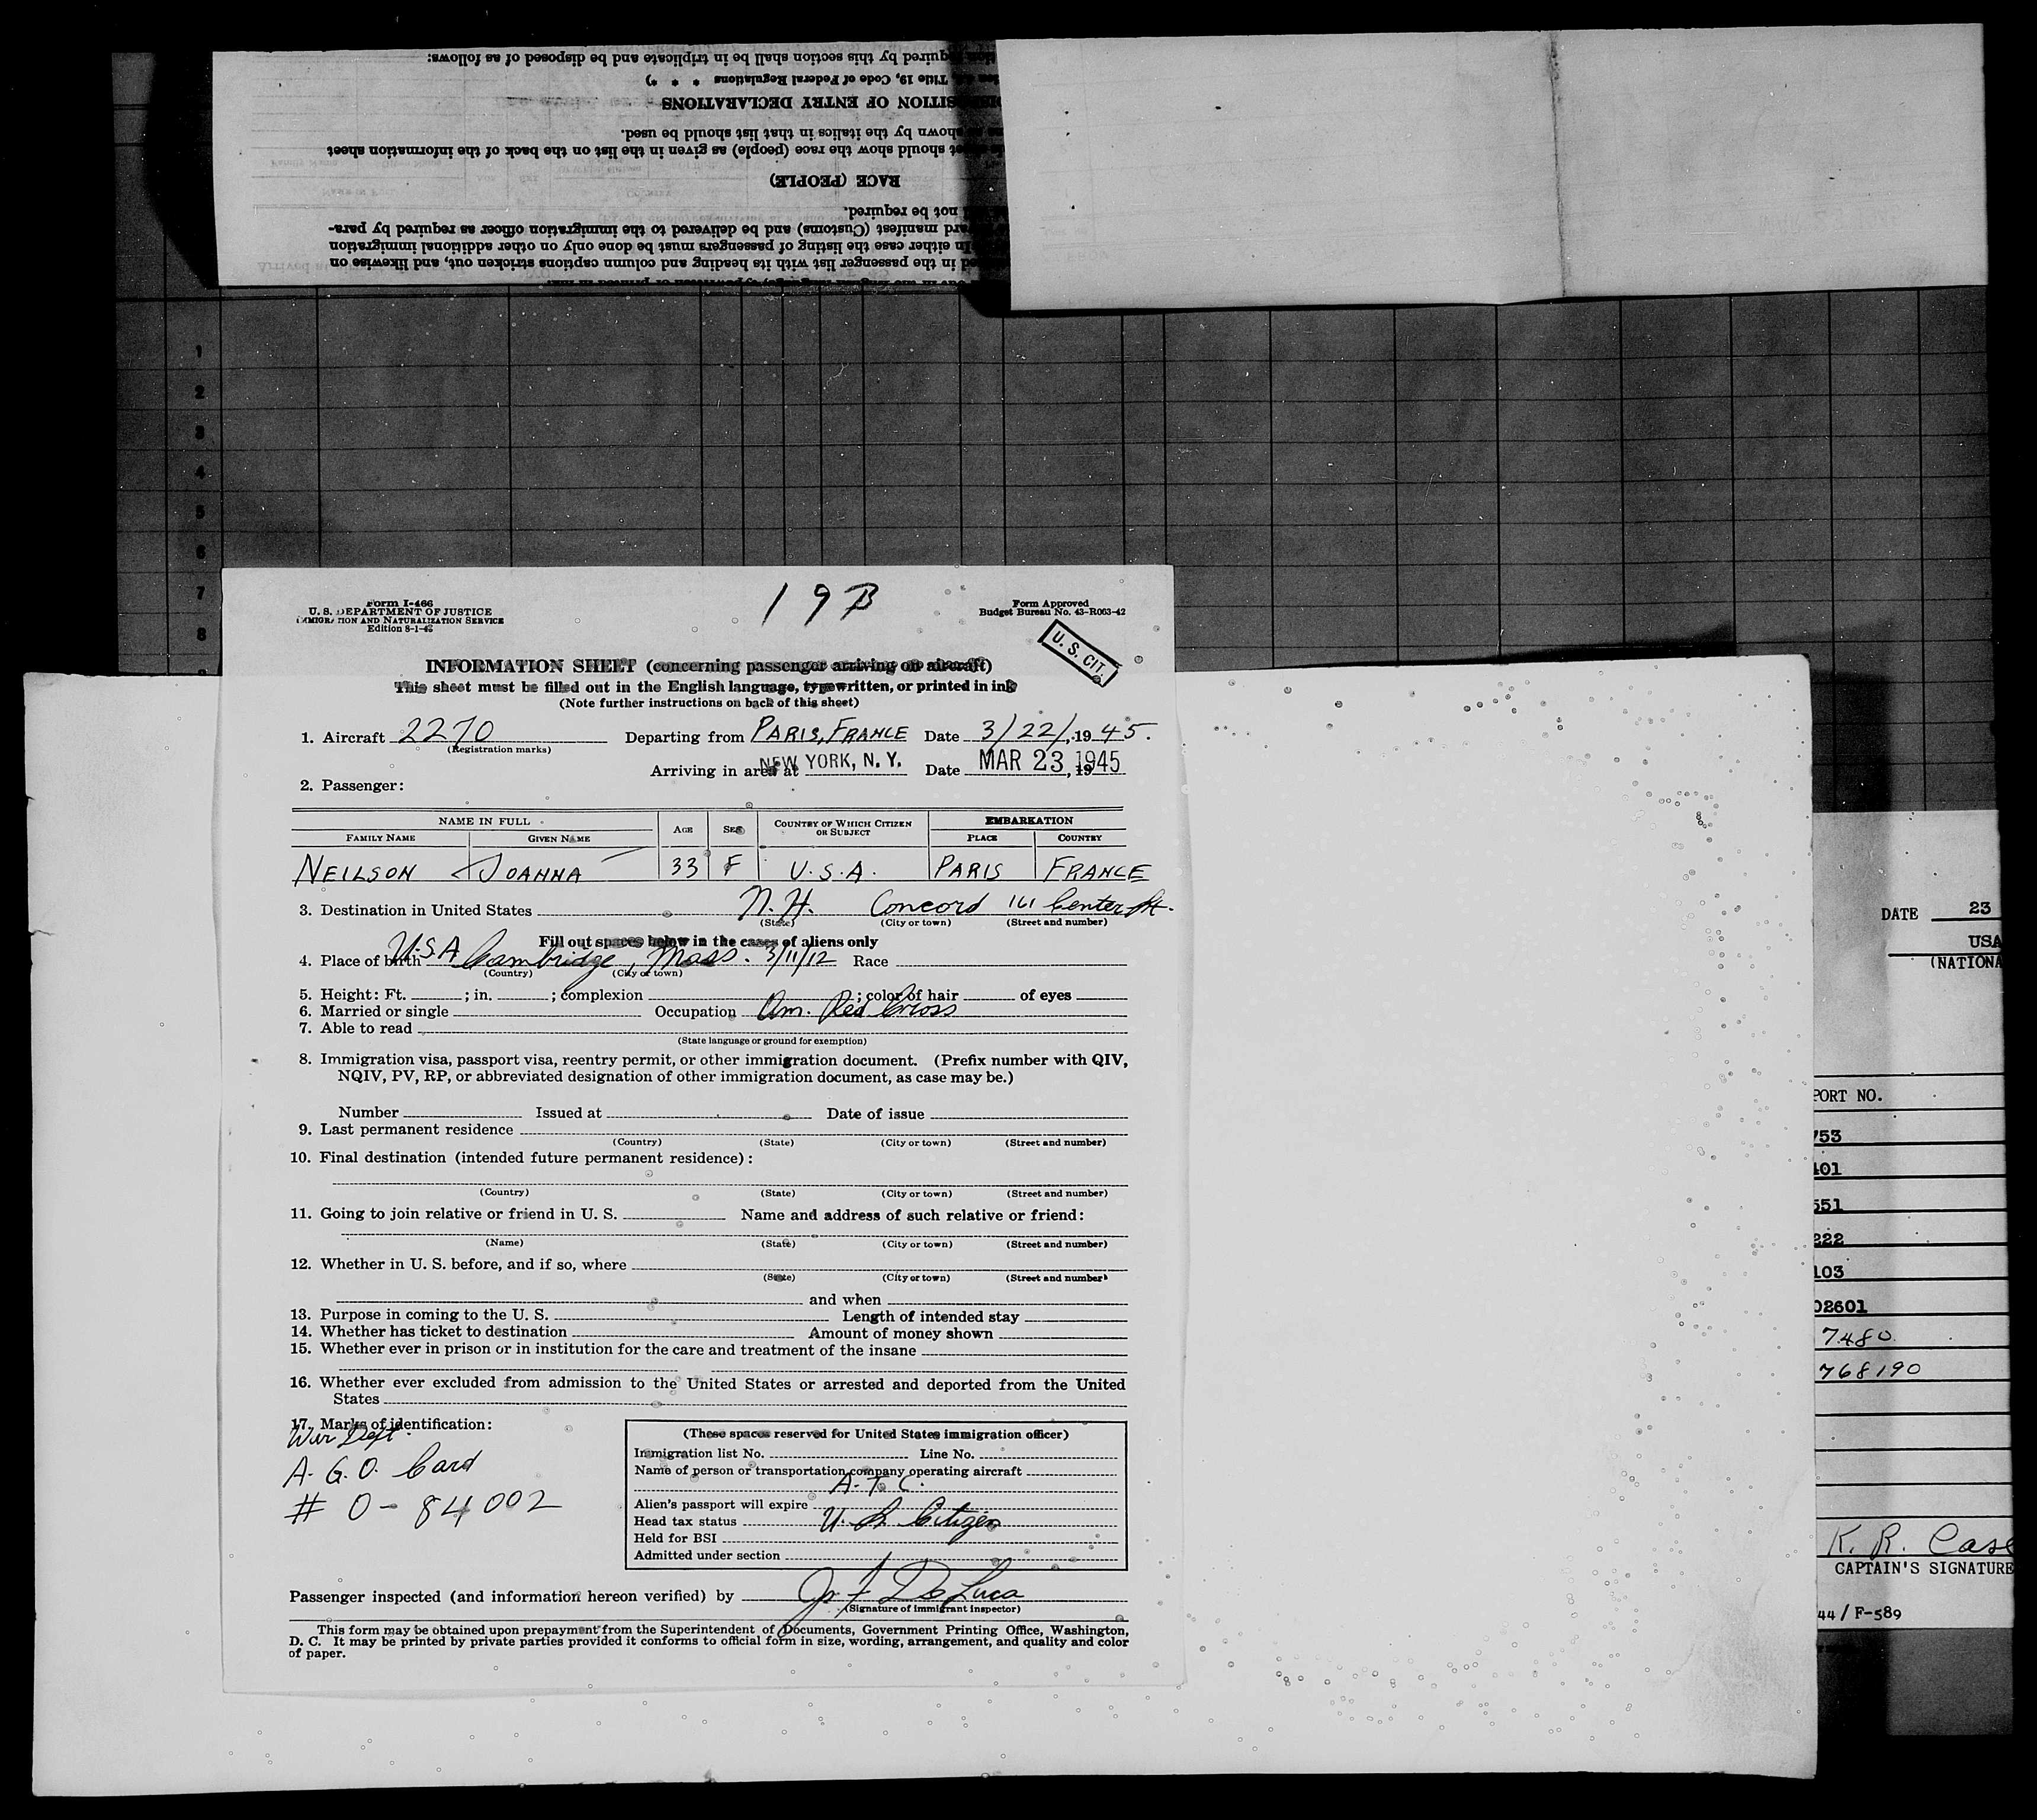 tion required by this section shall be in triplicate and be disposed of as follows:
Title 19, Code of Federal Regulations * * *)
DISPOSITION OF ENTRY DECLARATIONS
shown by the italics in that list should be used.
sheet should show the race (people) as given in the list on the back of the information sheet
RACE (PEOPLE)
not be required.
manifest (Customs) and be delivered to the immigration officer as required by para-
In either case the listing of passengers must be done only on other additional immigration
in the passenger list with its heading and column captions stricken out, and likewise on
1
2
3
4
5
6
7
8
19B
Form I-466
U. S. DEPARTMENT OF JUSTICE
IMMIGRATION AND NATURALIZATION SERVICE
Edition 8-1-42
Form Approved
Budget Bureau No. 43-R063-42
U. S. CIT.
INFORMATION SHEET (concerning passenger arriving on aircraft)
This sheet must be filled out in the English language, typewritten, or printed in ink
(Note further instructions on back of this sheet)
1. Aircraft 2270 Departing from PARIS, FRANCE Date 3/22/, 1945.
(Registration marks)
Arriving in area at NEW YORK, N. Y. Date MAR 23, 1945
2. Passenger:
NAME IN FULL AGE SEX COUNTRY OF WHICH CITIZEN OR SUBJECT EMBARKATION
FAMILY NAME GIVEN NAME PLACE COUNTRY
NEILSON JOANNA 33 F U.S.A. PARIS FRANCE
3. Destination in United States N. H. Concord 161 Center St.
(State) (City or town) (Street and number)
Fill out spaces below in the cases of aliens only
4. Place of birth U.S.A Cambridge, Mass. 3/11/12 Race
(Country) (City or town)
5. Height: Ft. ; in. ; complexion ; color of hair of eyes
6. Married or single Occupation Am. Red Cross
7. Able to read
(State language or ground for exemption)
8. Immigration visa, passport visa, reentry permit, or other immigration document. (Prefix number with QIV,
NQIV, PV, RP, or abbreviated designation of other immigration document, as case may be.)
Number Issued at Date of issue
9. Last permanent residence
(Country) (State) (City or town) (Street and number)
10. Final destination (intended future permanent residence):
(Country) (State) (City or town) (Street and number)
11. Going to join relative or friend in U. S. Name and address of such relative or friend:
(Name) (State) (City or town) (Street and number)
12. Whether in U. S. before, and if so, where
(State) (City or town) (Street and number)
and when
13. Purpose in coming to the U. S. Length of intended stay
14. Whether has ticket to destination Amount of money shown
15. Whether ever in prison or in institution for the care and treatment of the insane
16. Whether ever excluded from admission to the United States or arrested and deported from the United
States
17. Marks of identification:
War Dept.
A. G. O. Card
# O-84002
(These spaces reserved for United States immigration officer)
Immigration list No. Line No.
Name of person or transportation company operating aircraft
A. T. C.
Alien's passport will expire
Head tax status U. S. Citizen
Held for BSI
Admitted under section
Passenger inspected (and information hereon verified) by De Luca
(Signature of immigrant inspector)
This form may be obtained upon prepayment from the Superintendent of Documents, Government Printing Office, Washington,
D. C. It may be printed by private parties provided it conforms to official form in size, wording, arrangement, and quality and color
of paper.
DATE 23
USA
(NATIONA
PORT NO.
753
101
551
222
103
02601
7480
768190
K. R. Case
CAPTAIN'S SIGNATURE
44 / F-589